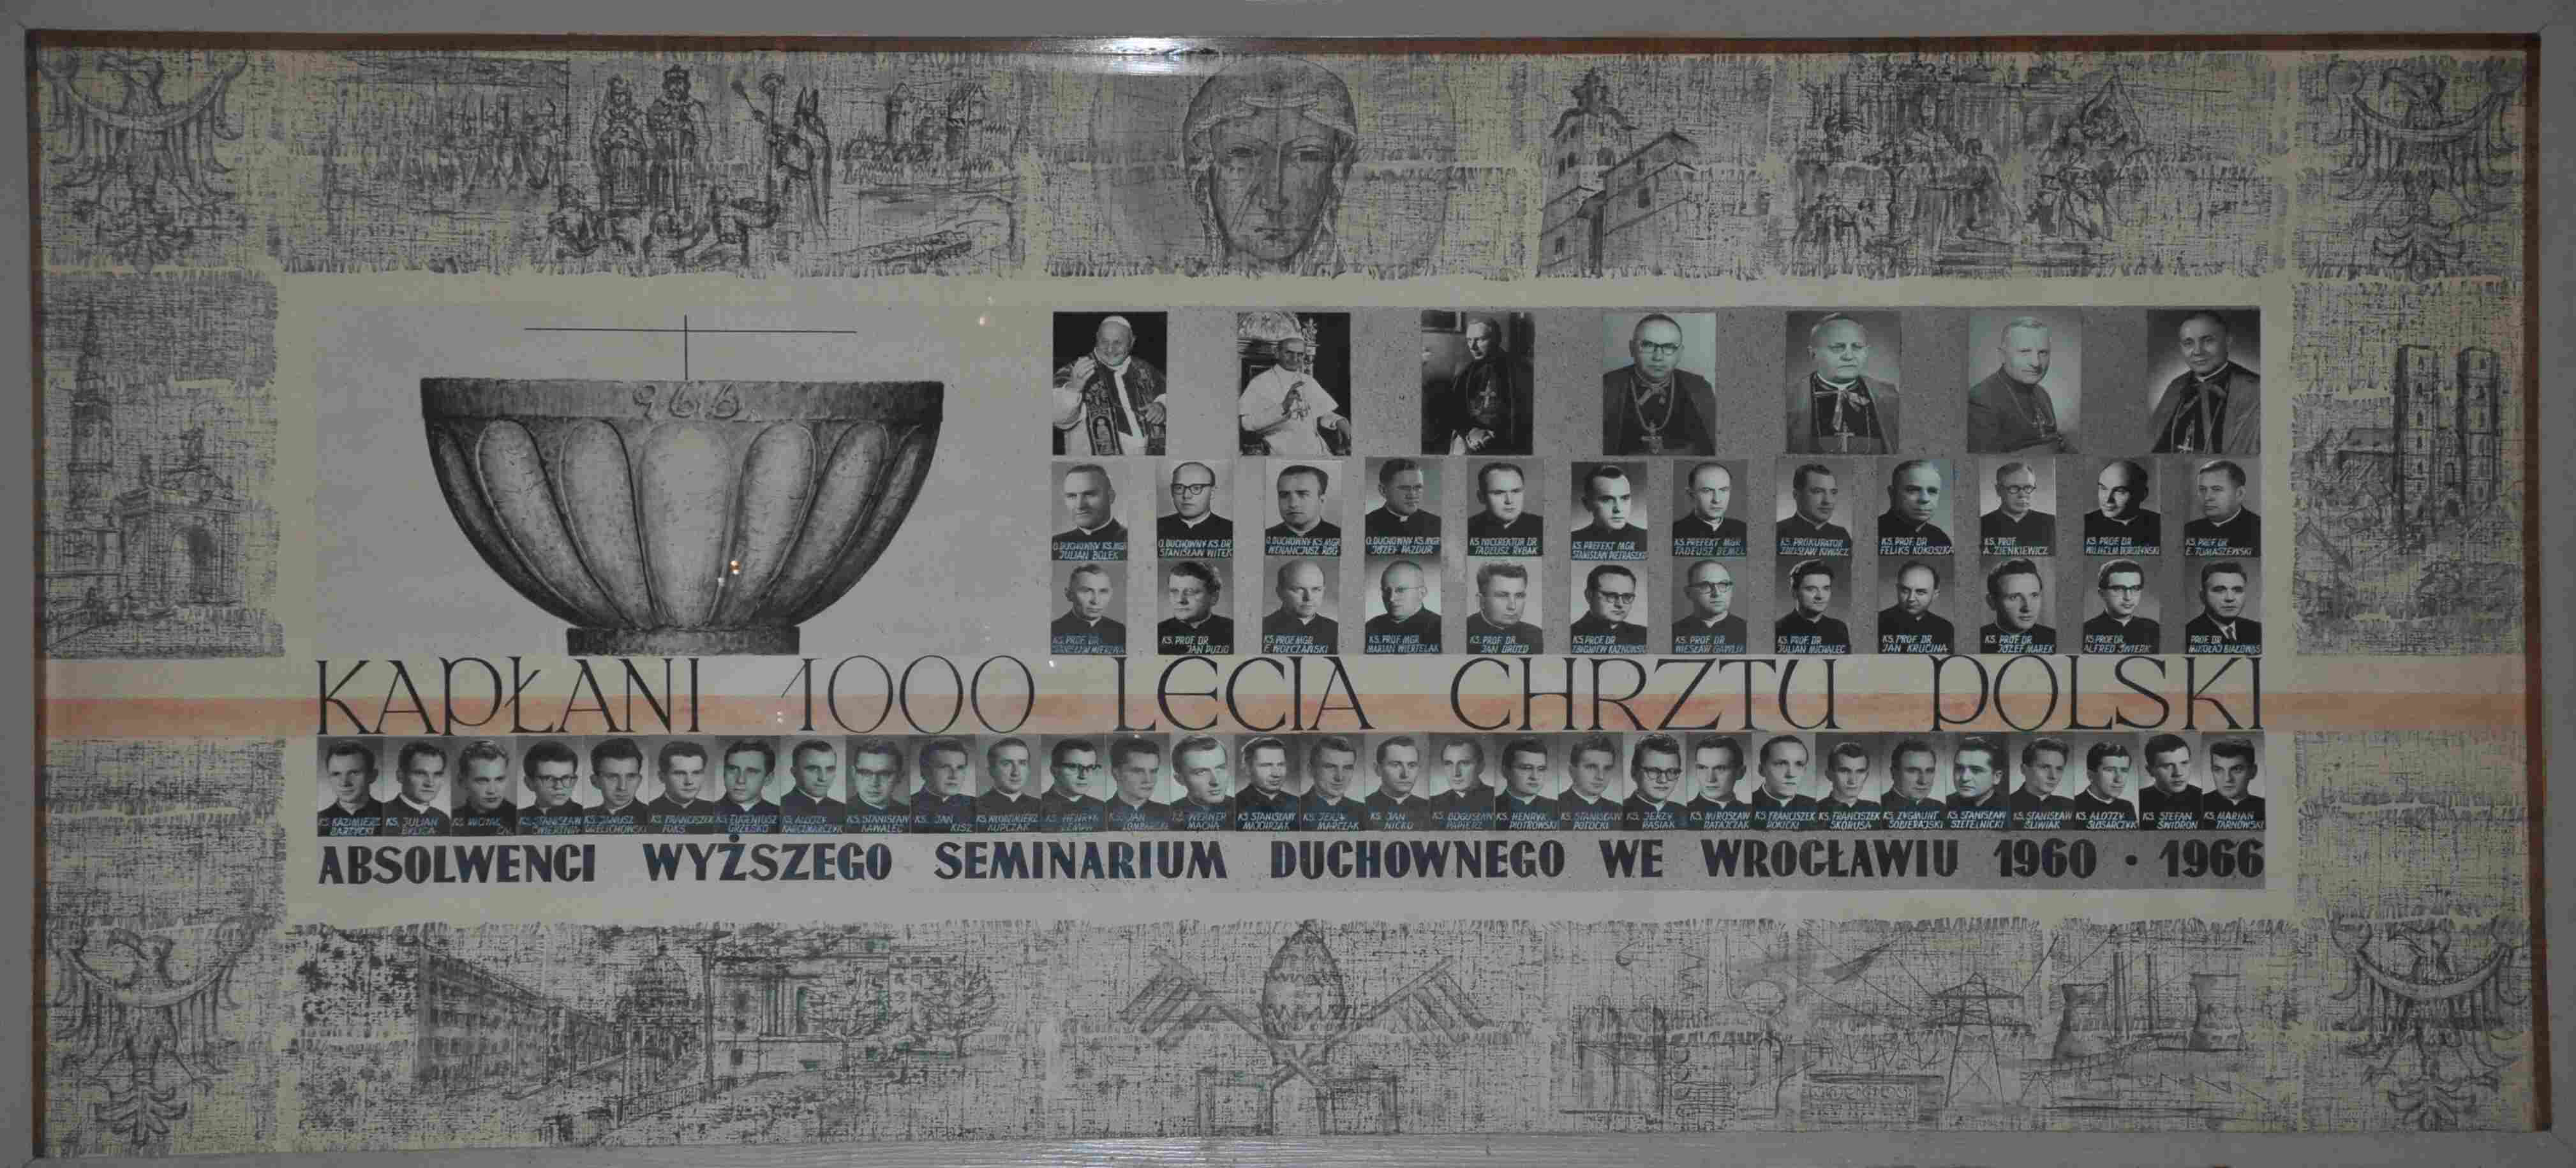 966
O. DUCHOWNY KS. MGR
JULIAN BOLEK
O. DUCHOWNY KS. DR
STANISŁAW WITEK
O. DUCHOWNY KS. MGR
WENANCJUSZ RÓG
O. DUCHOWNY KS. MGR
JÓZEF PAZDUR
KS. WICEREKTOR DR
TADEUSZ RYBAK
KS. PREFEKT MGR
STANISŁAW PIETRASZKO
KS. PREFEKT MGR
TADEUSZ
KS. PROKURATOR
ZDZISŁAW
KS. PROF. DR
FELIKS KOKOSZKA
KS. PROF.
A. ZIENKIEWICZ
KS. PROF. DR
WILHELM
KS. PROF. DR
E. TOMASZEWSKI
KS. PROF. DR
KS. PROF. DR
JAN PUZIO
KS. PROF. MGR
F. WOŁCZAŃSKI
KS. PROF. MGR
MARIAN WIERTELAK
KS. PROF. DR
JAN DROZD
KS. PROF. DR
ZBIGNIEW
KS. PROF. DR
WIESŁAW GAWLIK
KS. PROF. DR
JULIAN MICHALEC
KS. PROF. DR
JAN KRUCINA
KS. PROF. DR
JÓZEF MAREK
KS. PROF. DR
ALFRED ŚWIERK
PROF. DR
MIKOŁAJ
KAPŁANI 1000 LECIA CHRZTU POLSKI
KS. KAZIMIERZ
BARTYCKI
KS. JULIAN
BYLICA
KS. MICHAŁ
KS. STANISŁAW
KS. JANUSZ
GIELICHOWSKI
KS. FRANCISZEK
FUKS
KS. EUGENIUSZ
GRZEŚKO
KS. ALOJZY
KARCZMARCZYK
KS. STANISŁAW
KAWALEC
KS. JAN
KISZ
KS. WŁODZIMIERZ
KUPCZAK
KS. HENRYK
KS. JAN
KS. WERNER
MACHA
KS. STANISŁAW
MAJCHRZAK
KS. JERZY
MARCZAK
KS. JAN
NICKO
KS. BOGUSŁAW
PAPIERZ
KS. HENRYK
PIOTROWSKI
KS. STANISŁAW
POTOCKI
KS. JERZY
RASIAK
KS. MIROSŁAW
RATAJCZAK
KS. FRANCISZEK
ROKICKI
KS. FRANCISZEK
SKORUSA
KS. ZYGMUNT
SOBIERAJSKI
KS. STANISŁAW
SZETELNICKI
KS. STANISŁAW
ŚLIWIAK
KS. ALOJZY
ŚLÓSARCZYK
KS. STEFAN
ŚWIDROŃ
KS. MARIAN
TARNOWSKI
ABSOLWENCI WYŻSZEGO SEMINARIUM DUCHOWNEGO WE WROCŁAWIU 1960 · 1966